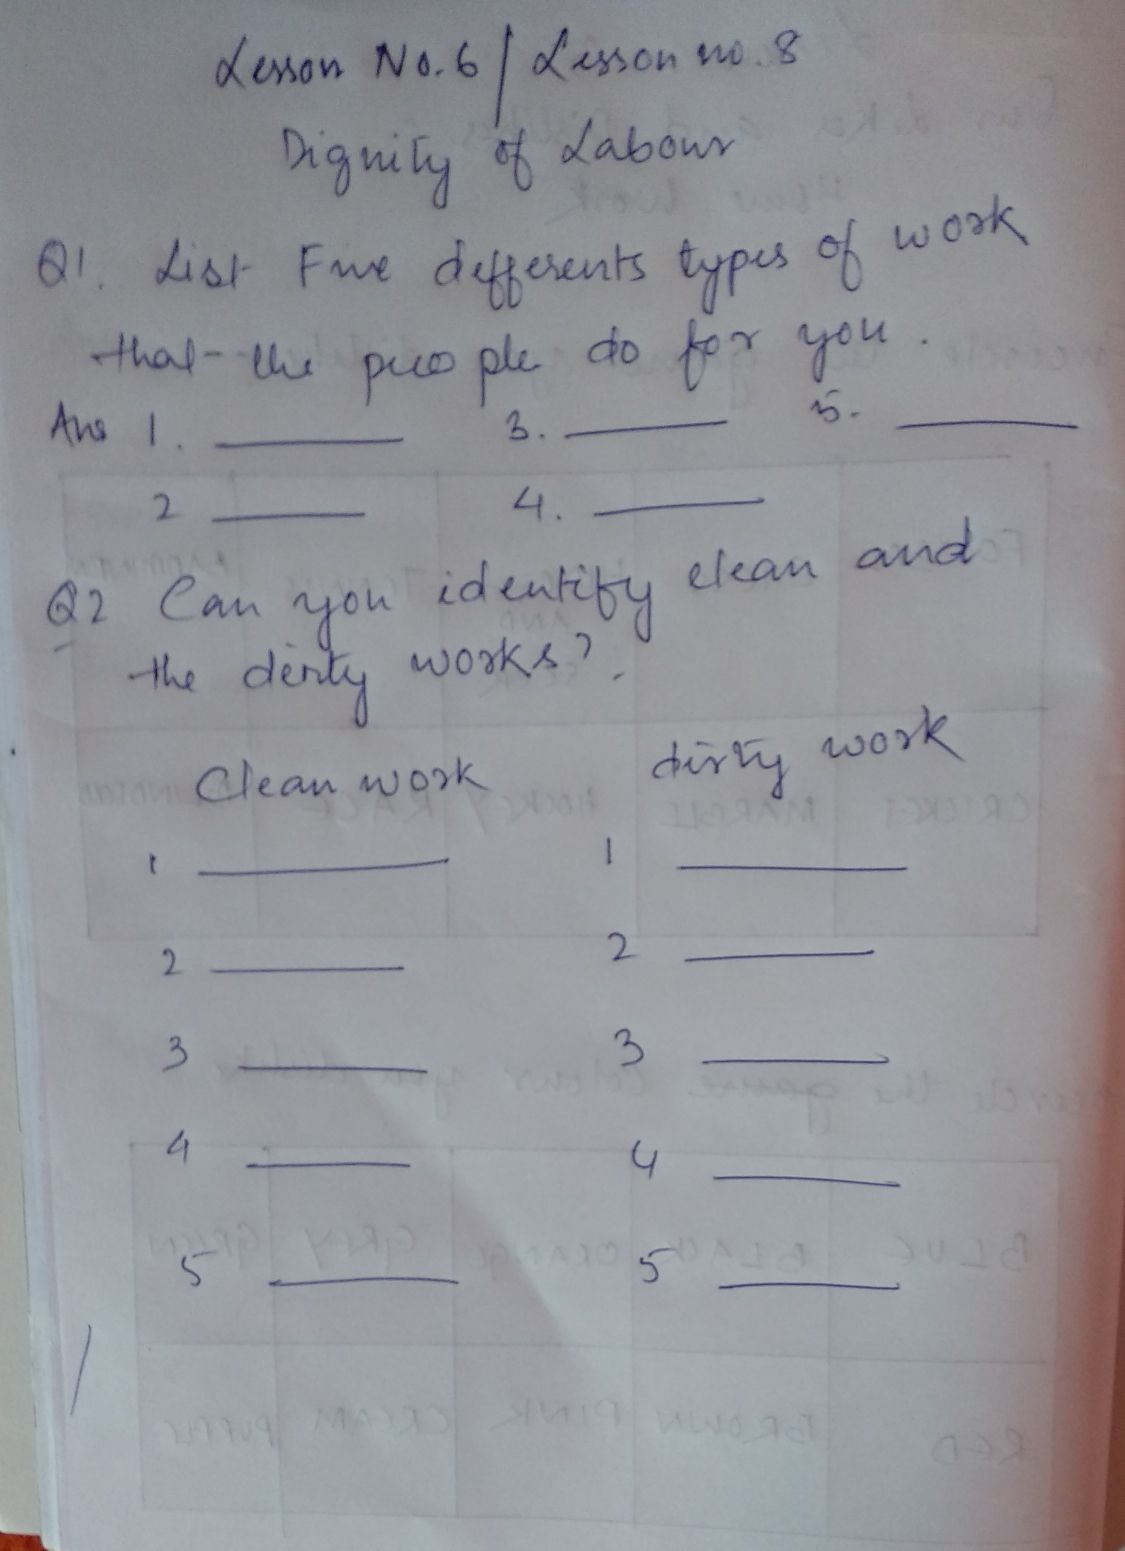 Lesson No. 6 / Lesson no. 8
Dignity of Labour
Q1. List Five differents types of work
that the people do for you.
Ans 1. ______ 3. ______ 5. ______
2 ______ 4. ______
Q2 Can you identify clean and
the dirty works?.
Clean work dirty work
1 ______ 1 ______
2 ______ 2 ______
3 ______ 3 ______
4 ______ 4 ______
5 ______ 5 ______